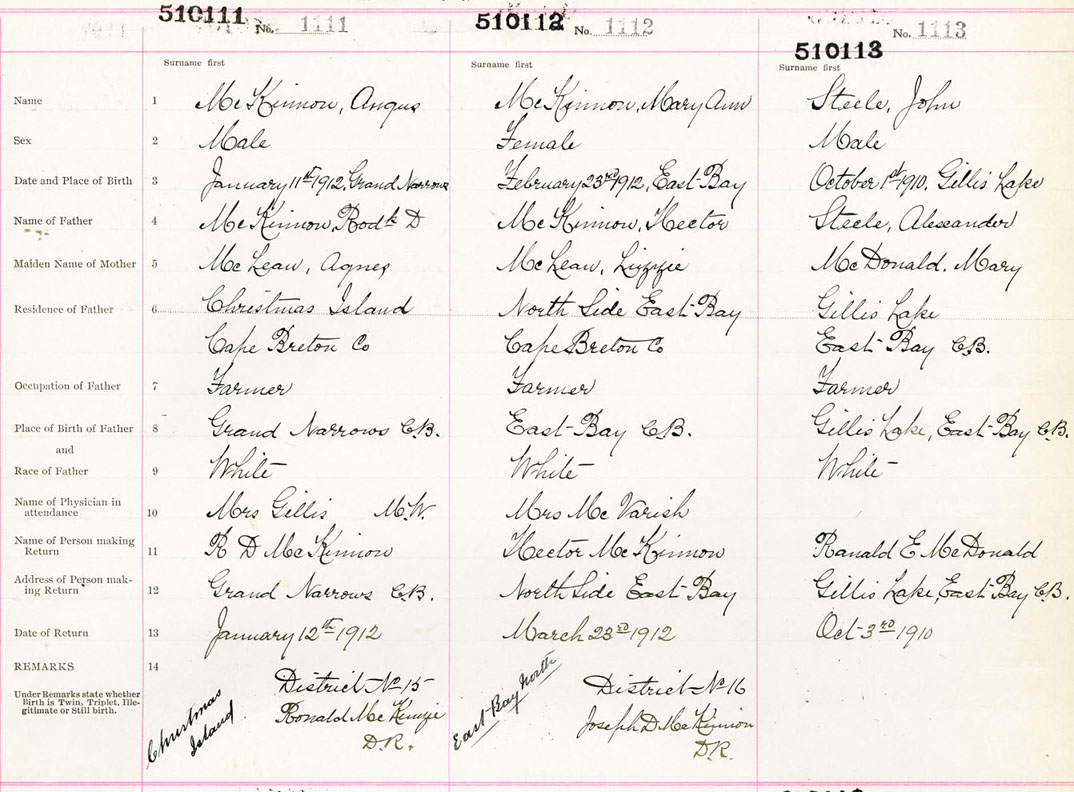 510111 No. 1111 510112 No. 1112 No. 1113
510113
Surname first Surname first Surname first
Name 1 McKinnon, Angus McKinnon, Mary Ann Steele, John
Sex 2 Male Female Male
Date and Place of Birth 3 January 11th 1912, Grand Narrows February 23rd 1912, East Bay October 1st 1910. Gillis Lake
Name of Father 4 McKinnon, Rodk D McKinnon, Hector Steele, Alexander
Maiden Name of Mother 5 McLean, Agnes McLean, Lizzie McDonald. Mary
Residence of Father 6 Christmas Island North Side East Bay Gillis Lake
Cape Breton Co Cape Breton Co East Bay C.B.
Occupation of Father 7 Farmer Farmer Farmer
Place of Birth of Father 8 Grand Narrows C.B. East Bay C.B. Gillis Lake, East Bay C.B.
and
Race of Father 9 White White White
Name of Physician in
attendance 10 Mrs Gillis M.W. Mrs McVarish
Name of Person making
Return 11 R D McKinnon Hector McKinnon Ranald E McDonald
Address of Person mak-
ing Return 12 Grand Narrows C.B. North Side East Bay Gillis Lake, East Bay C.B.
Date of Return 13 January 12th 1912 March 23rd 1912 Oct 3rd 1910
REMARKS 14
District No 15 District No 16
Under Remarks state whether
Birth is Twin, Triplet, Ille-
gitimate or Still birth.
Christmas
Island
Ronald McKenzie
D.R.
East Bay North
Joseph D McKinnon
D.R.